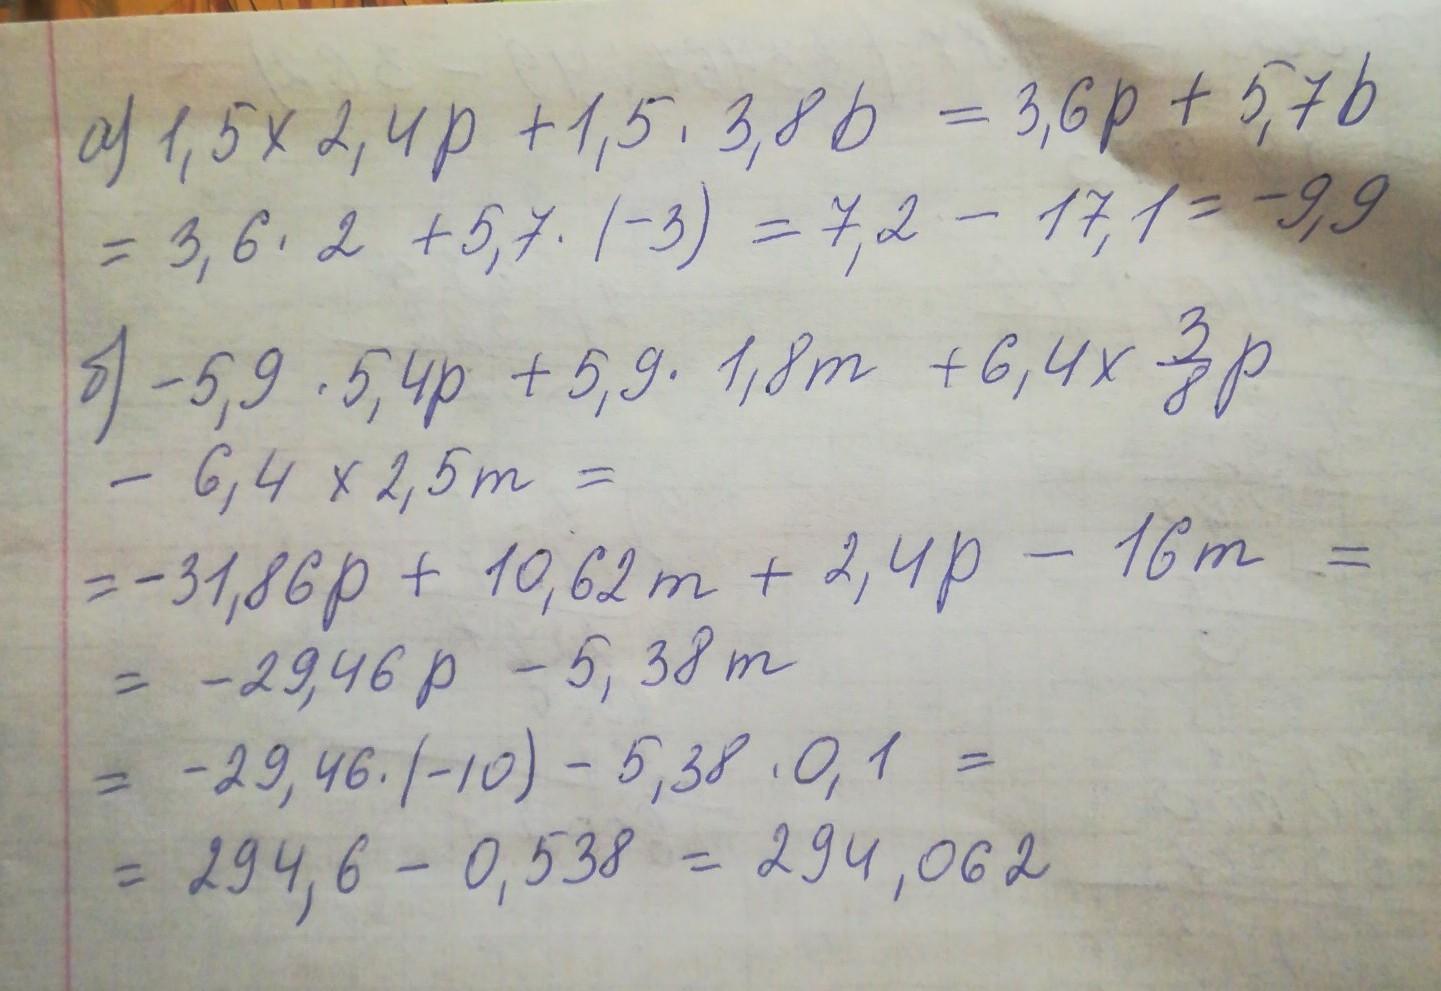 а) 1,5 x 2,4p + 1,5 · 3,8b = 3,6p + 5,7b
= 3,6 · 2 + 5,7 · (-3) = 7,2 - 17,1 = -9,9
б) -5,9 · 5,4p + 5,9 · 1,8m + 6,4 x 3/8 p
- 6,4 x 2,5m =
= -31,86p + 10,62m + 2,4p - 16m =
= -29,46p - 5,38m
= -29,46 · (-10) - 5,38 · 0,1 =
= 294,6 - 0,538 = 294,062